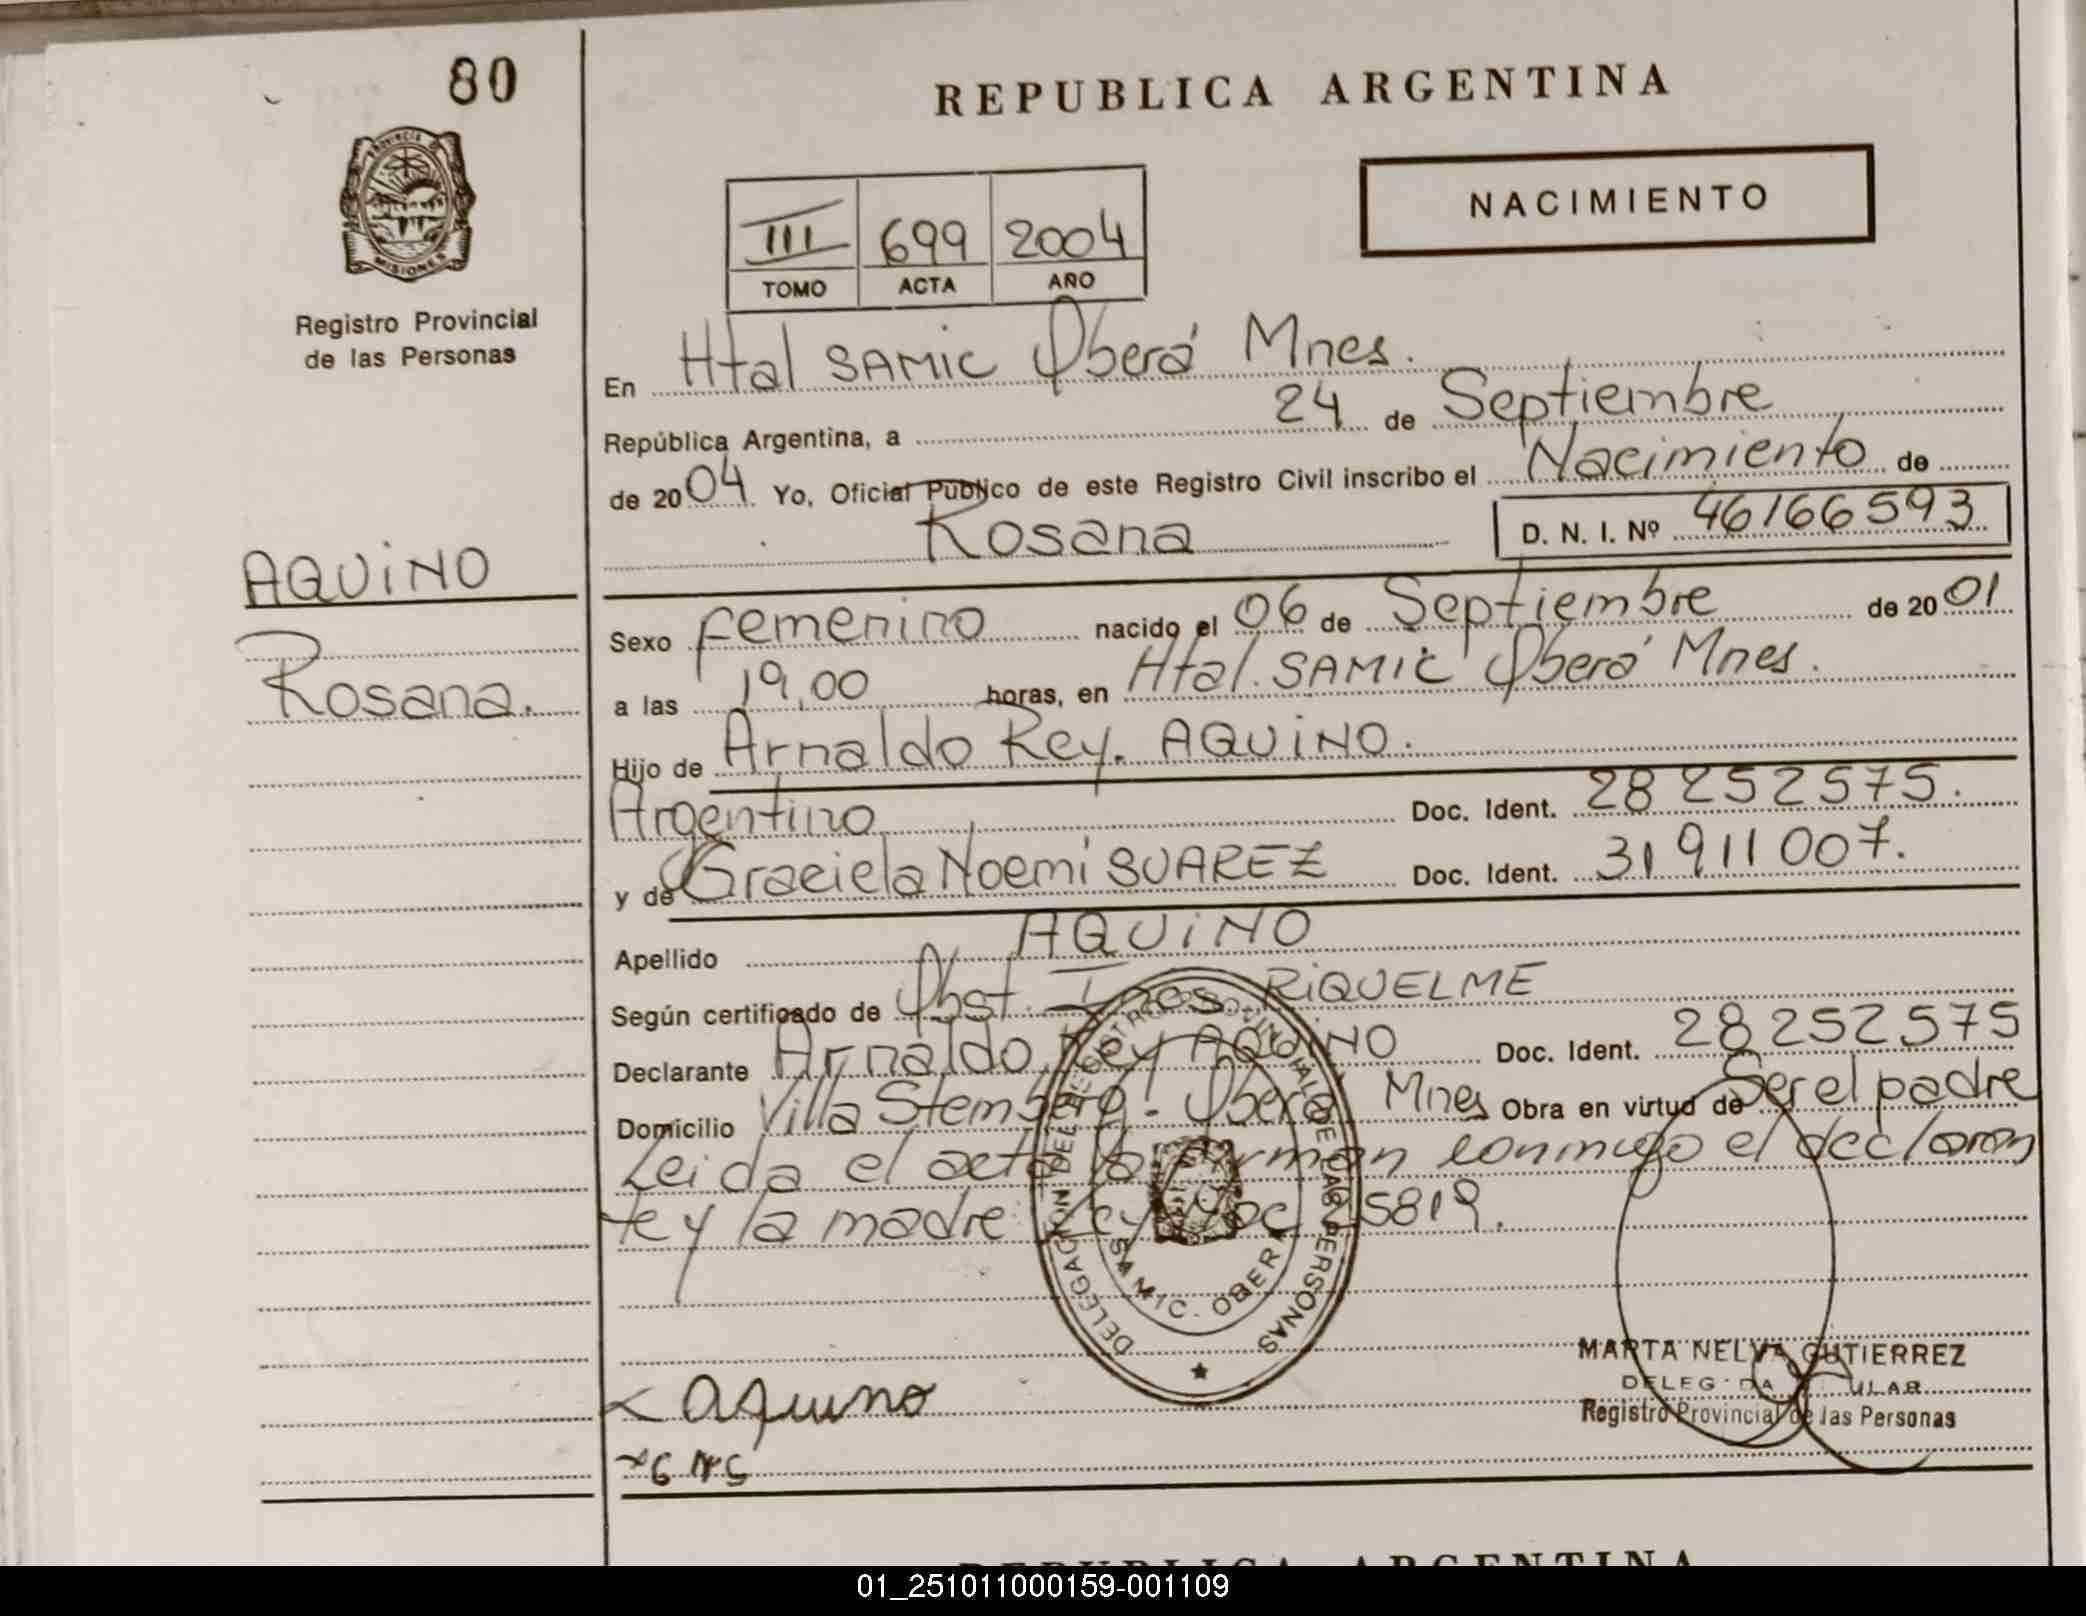 80
PROVINCIA DE
MISIONES
Registro Provincial
de las Personas
AQUINO
Rosana.
REPUBLICA ARGENTINA
NACIMIENTO
III 699 2004
TOMO ACTA AÑO
En Htal SAMIC Oberá Mnes.
República Argentina, a 24 de Septiembre
de 2004 Yo, Oficial Público de este Registro Civil inscribo el Nacimiento de
Rosana D. N. I. Nº 46166593
Sexo femenino nacido el 06 de Septiembre de 2001
a las 19,00 horas, en Htal. SAMIC Oberá Mnes.
Hijo de Arnaldo Rey. AQUINO.
Argentino Doc. Ident. 28 252575.
y de Graciela Noemí SUAREZ Doc. Ident. 31911007.
Apellido AQUINO
Según certificado de Obst. Ines RIQUELME
Declarante Arnaldo Rey AQUINO Doc. Ident. 28 252575
Domicilio Villa Stemberg. Oberá Mnes Obra en virtud de Ser el padre
Leida el acta la firman conmigo el declaran
te y la madre Ley Nac 25819.
DELEGACION DEL REGISTRO PROVINCIAL DE LAS PERSONAS
SAMIC. OBERA
Aquino
MARTA NELVA GUTIERREZ
Registro Provincial de las Personas
REPUBLICA ARGENTINA
01_251011000159-001109